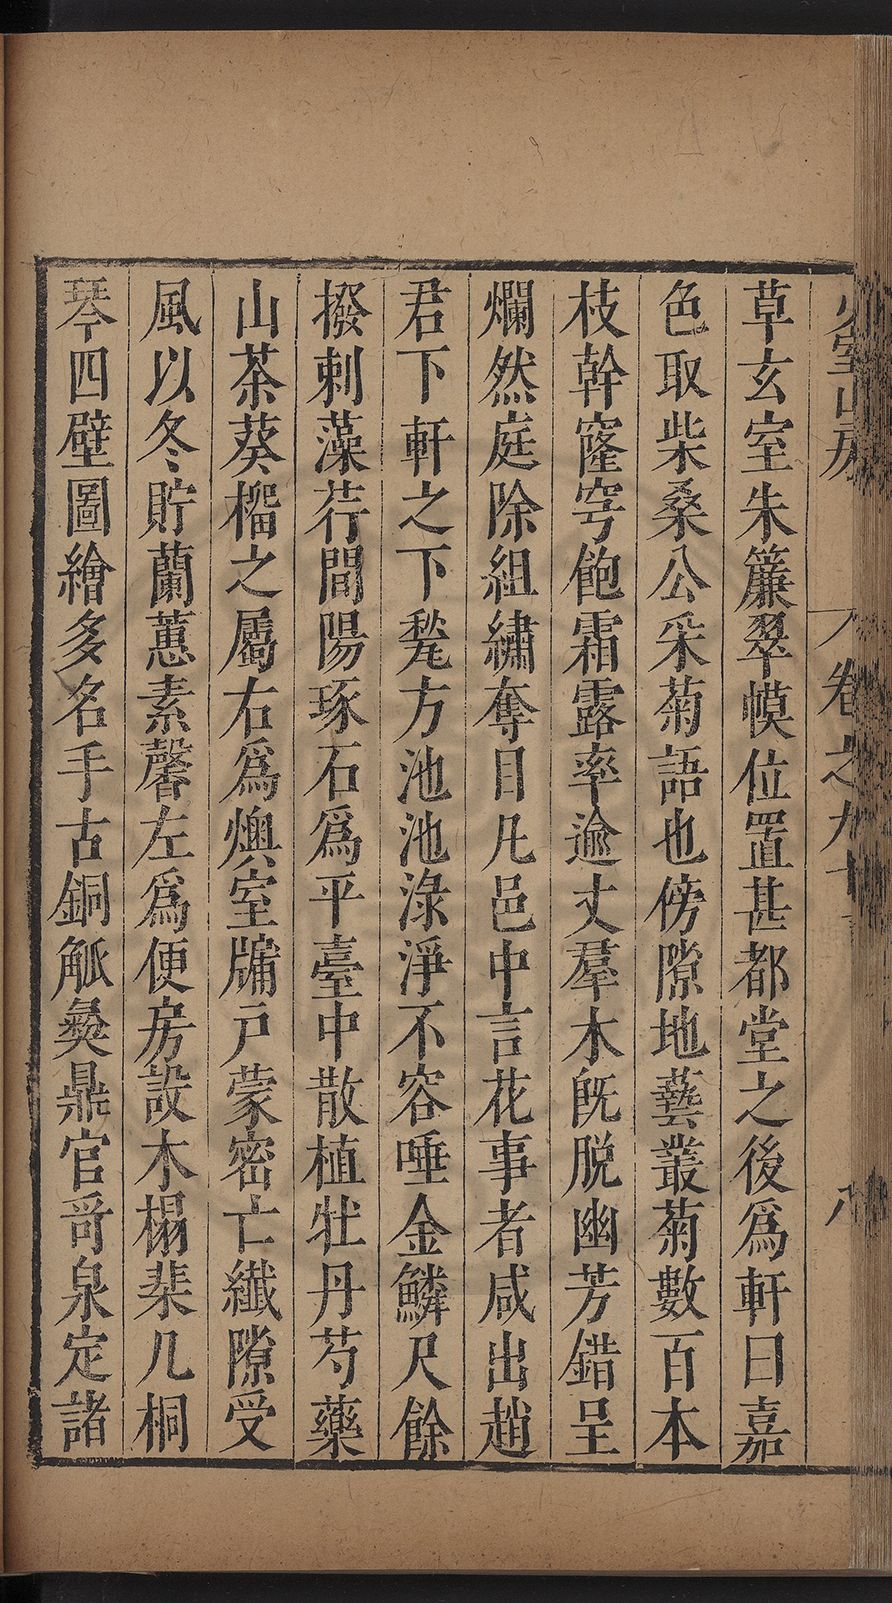 少室山房 卷之九十 八
草玄室朱簾翠幙位置甚都堂之後爲軒曰嘉
色取柴桑公采菊語也傍隙地藝叢菊數百本
枝幹窿穹飽霜露率逾丈羣木旣脱幽芳錯呈
爛然庭除組繡奪目凡邑中言花事者咸出趙
君下軒之下甃方池池淥淨不容唾金鱗尺餘
撥剌藻荇間陽琢石爲平臺中散植牡丹芍藥
山茶葵橊之屬右爲燠室牖戸蒙密亡纖隙受
風以冬貯蘭蕙素馨左爲便房設木榻棐几桐
琴四壁圖繪多名手古銅觚彛鼎官哥泉定諸